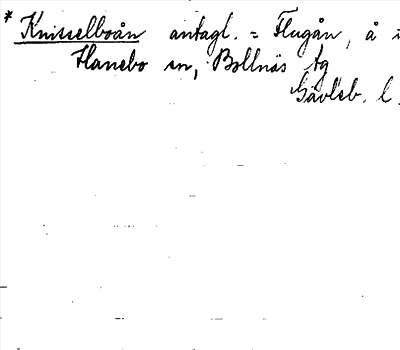 * Knisselboån antagl. = Flugån, å i
Hanebo sn, Bollnäs tg
Gävleb. l.